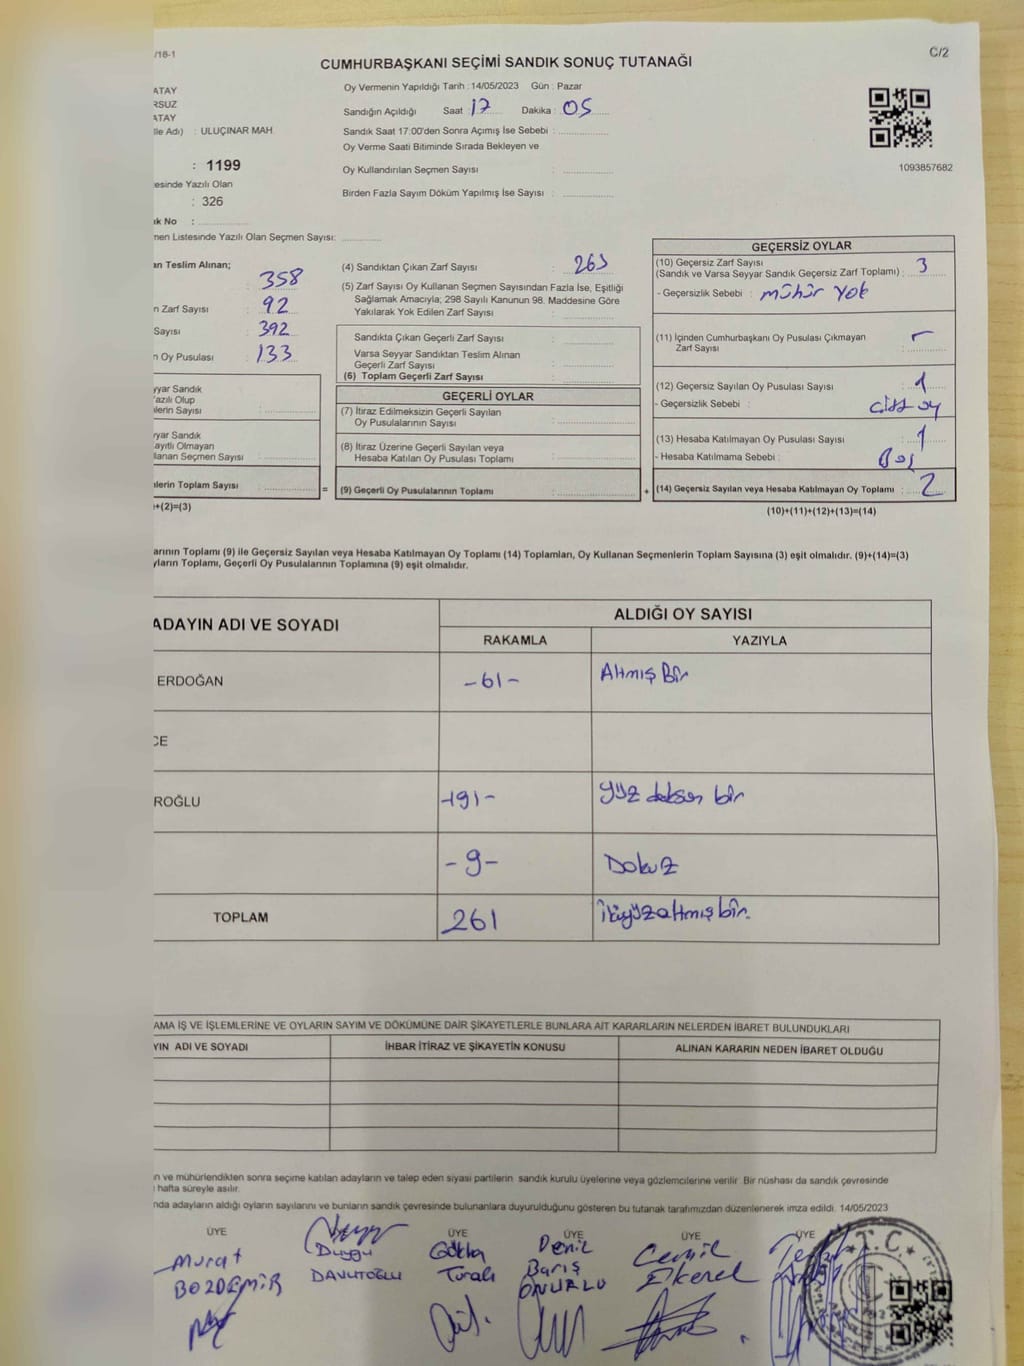 /18-1
C/2
CUMHURBAŞKANI SEÇİMİ SANDIK SONUÇ TUTANAĞI
ATAY
RSUZ
ATAY
lle Adı) : ULUÇINAR MAH
: 1199
esinde Yazılı Olan
: 326
ık No :
men Listesinde Yazılı Olan Seçmen Sayısı:
Oy Vermenin Yapıldığı Tarih : 14/05/2023 Gün : Pazar
Sandığın Açıldığı Saat : 17 Dakika : 05
Sandık Saat 17:00'den Sonra Açımış İse Sebebi :
Oy Verme Saati Bitiminde Sırada Bekleyen ve
Oy Kullandırılan Seçmen Sayısı :
Birden Fazla Sayım Döküm Yapılmış İse Sayısı :
1093857682
an Teslim Alınan;
358
n Zarf Sayısı : 92
Sayısı : 392
n Oy Pusulası : 133
yyar Sandık
Yazılı Olup
nlerin Sayısı :
yyar Sandık
ayıtlı Olmayan
lanan Seçmen Sayısı :
nlerin Toplam Sayısı : =
)+(2)=(3)
(4) Sandıktan Çıkan Zarf Sayısı : 263
(5) Zarf Sayısı Oy Kullanan Seçmen Sayısından Fazla İse, Eşitliği
Sağlamak Amacıyla; 298 Sayılı Kanunun 98. Maddesine Göre
Yakılarak Yok Edilen Zarf Sayısı :
Sandıkta Çıkan Geçerli Zarf Sayısı :
Varsa Seyyar Sandıktan Teslim Alınan
Geçerli Zarf Sayısı :
(6) Toplam Geçerli Zarf Sayısı :
GEÇERLİ OYLAR
(7) İtiraz Edilmeksizin Geçerli Sayılan
Oy Pusulalarının Sayısı :
(8) İtiraz Üzerine Geçerli Sayılan veya
Hesaba Katılan Oy Pusulası Toplamı :
(9) Geçerli Oy Pusulalarının Toplamı : +
GEÇERSİZ OYLAR
(10) Geçersiz Zarf Sayısı
(Sandık ve Varsa Seyyar Sandık Geçersiz Zarf Toplamı) : 3
- Geçersizlik Sebebi : mühür yok
(11) İçinden Cumhurbaşkanı Oy Pusulası Çıkmayan
Zarf Sayısı : -
(12) Geçersiz Sayılan Oy Pusulası Sayısı : 1
- Geçersizlik Sebebi : Çift oy
(13) Hesaba Katılmayan Oy Pusulası Sayısı : 1
- Hesaba Katılmama Sebebi : Boş
(14) Geçersiz Sayılan veya Hesaba Katılmayan Oy Toplamı : 2
(10)+(11)+(12)+(13)=(14)
arının Toplamı (9) ile Geçersiz Sayılan veya Hesaba Katılmayan Oy Toplamı (14) Toplamları, Oy Kullanan Seçmenlerin Toplam Sayısına (3) eşit olmalıdır. (9)+(14)=(3)
yların Toplamı, Geçerli Oy Pusulalarının Toplamına (9) eşit olmalıdır.
ADAYIN ADI VE SOYADI
ALDIĞI OY SAYISI
RAKAMLA YAZIYLA
ERDOĞAN -61- Altmış Bir
CE
ROĞLU -191- yüz doksan bir
-9- Dokuz
TOPLAM 261 ikiyüzaltmış bir.
AMA İŞ VE İŞLEMLERİNE VE OYLARIN SAYIM VE DÖKÜMÜNE DAİR ŞİKAYETLERLE BUNLARA AİT KARARLARIN NELERDEN İBARET BULUNDUKLARI
YIN ADI VE SOYADI İHBAR İTİRAZ VE ŞİKAYETİN KONUSU ALINAN KARARIN NEDEN İBARET OLDUĞU
n ve mühürlendikten sonra seçime katılan adayların ve talep eden siyasi partilerin sandık kurulu üyelerine veya gözlemcilerine verilir. Bir nüshası da sandık çevresinde
hafta süreyle asılır.
nda adayların aldığı oyların sayılarını ve bunların sandık çevresinde bulunanlara duyurulduğunu gösteren bu tutanak tarafımızdan düzenlenerek imza edildi. 14/05/2023
ÜYE ÜYE ÜYE ÜYE ÜYE
Murat Duygu Deniz Cemil
BOZDEMİR DAVUTOĞLU Turalı Barış
ONURLU
T.C.